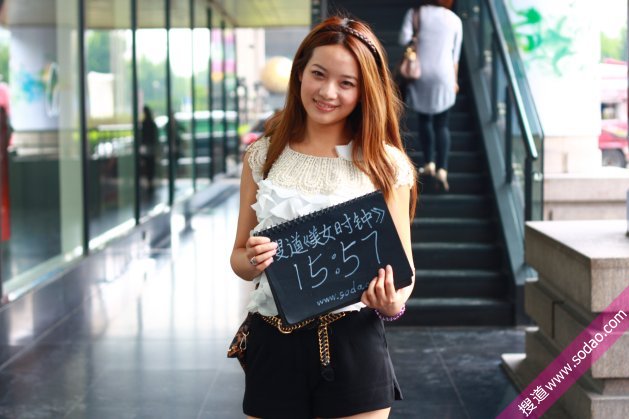 搜道《美女时钟》
15:57
www.soda
搜道 www.sodao.com